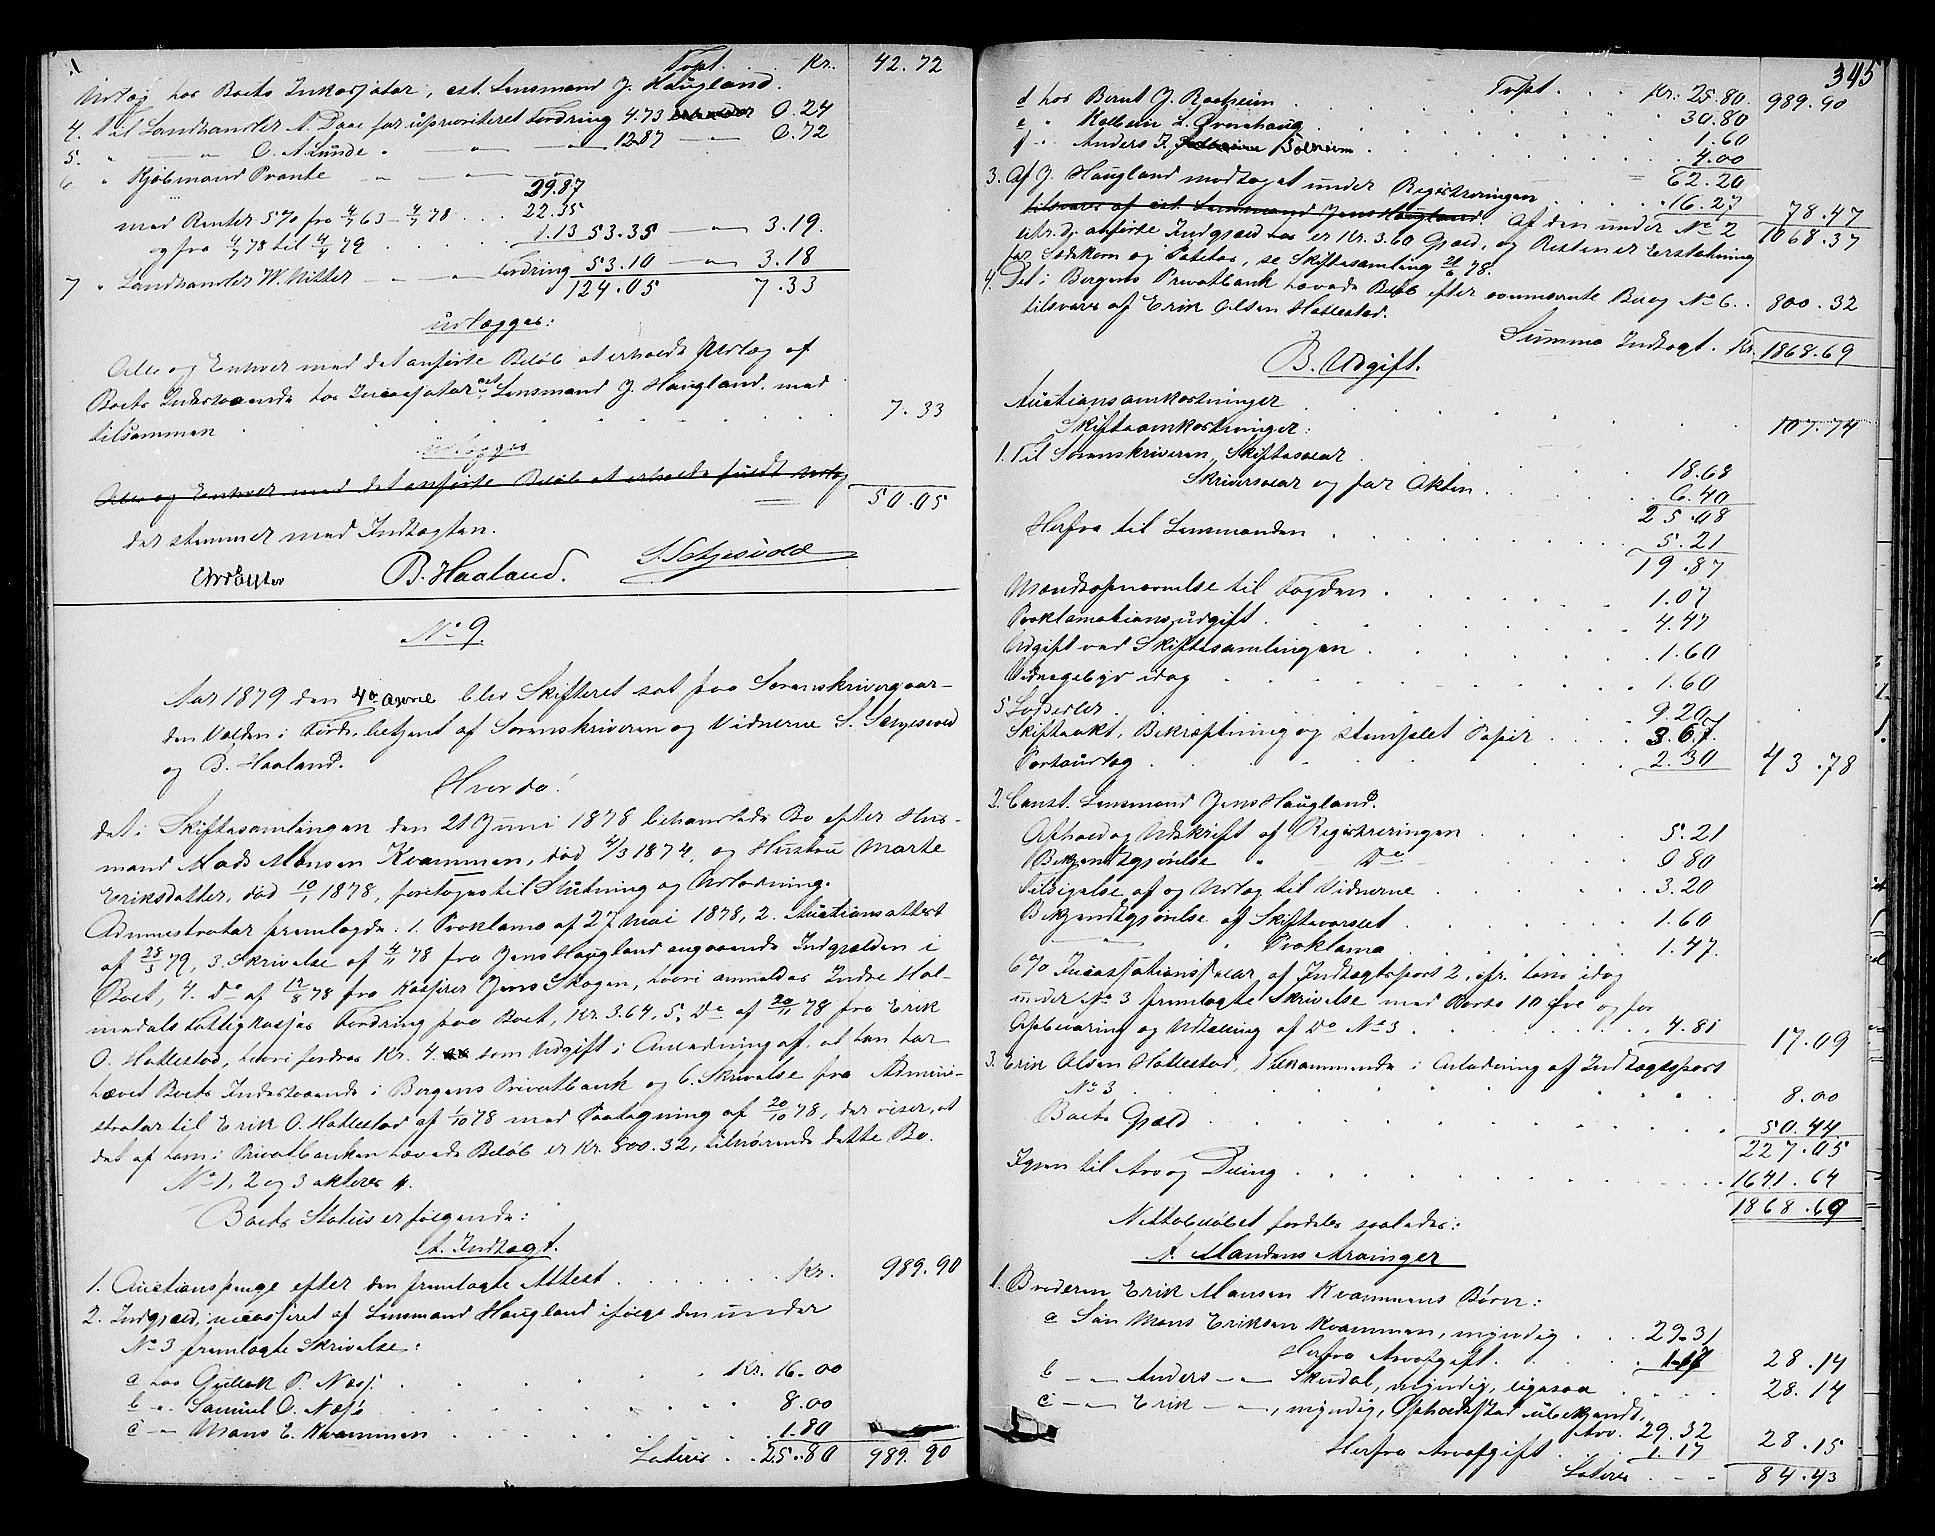 Topt. . . Kr. 42.72
Udlæg hos Boets Inkassator, cst. Lensmand J. Haugland.
4. Til Landhandler A. Daae for uprioriteret Fordring 4.73 0.24
5. " — " — O. A. Lunde " — " — 12.87 — " — 0.72
6 " Kjøbmand Prante — " — " — 29.87
med Renter 5% fra 4/7 63 – 4/7 78 . . . 22.35
og fra 4/7 78 til 4/4 79 . . . 1.13 53.35 — " — 3.19.
7 " Landhandler W. Witter — " — Fordring 53.10 — " — 3.18
124.05 7.33
udlægges:
Alle og Enhver med det anførte Beløb at erholde Udlæg af
Boets Indestaaende hos Incassator cst. Lensmand J. Haugland med
tilsammen . . . . . . 7.33
udlægges
Alle og Enhver med det anførte Beløb at erholde fuldt Udlæg
50.05
der stemmer med Indtægten.
B. Haaland.
No 9.
Aar 1879 den 4de April blev Skifteret sat paa Sorenskrivergaar-
den Valden i Førde, betjent af Sorenskriveren og Vidnerne S. Setjesvold
og B. Haaland.
Hvorda!
det i Skiftesamlingen den 21 Juni 1878 behandlede Bo efter Hus-
mand Mads Monsen Kvammen, død 4/3 1874, og Hustru Marte
Eriksdatter, død 10/1 1878, foretoges til Slutning og Udlodning.
Administrator fremlagde: 1. Proklama af 27 Mai 1878, 2. Auctionsattest
af 28/3 79, 3. Skrivelse af 4/11 78 fra Jens Haugland angaaende Indgjælden i
Boet, 4. Do af 17/8 78 fra Kasserer Jens Skogen, hvori anmeldes Indre Hol-
medals Fattigkasses Fordring paa Boet, Kr. 3.64, 5. Do af 20/11 78 fra Erik
O. Hatlestad, hvori fordres Kr. 4 som Udgift i Anledning af, at han har
hævet Boets Indestaaende i Bergens Privatbank og 6. Skrivelse fra Admini-
strator til Erik O. Hatlestad af 1/10 78 med Paategning af 20/10 78, der viser, at
det af ham i Privatbanken hævede Beløb er Kr. 800.32, tilhørende dette Bo.
No 1, 2 og 3 akteres
Boets Status er følgende:
A. Indtægt.
1. Auctionspenge efter den fremlagte Attest . . . . . . . Kr. 989.90
2. Indgjæld, incasseret af Lensmand Haugland ifølge den under
No 3 fremlagte Skrivelse:
a hos Gullak P. Næss. . . . . . Kr. 16.00
b " Samuel O. Næss . . . . . 8.00
c " Mons E. Kvammen . . . . . . 1.80
Lateris . . 25.80 989.90
345
Topt . . . Kr: 25.80. 989.90
d hos Bernt J. Roeheim . . . . . . 30.80
e " Kolbein L. Øvrehaug . . . . . . 1.60
f " Anders J. Solheim . . . . . 4.00
= 62.20
3. Af J. Haugland modtaget under Registreringen . . . . . 16.27 78.47
tilsvares af cst. Lensmand Jens Haugland. Af den under No 2 1068.37
anførte Indgjæld er Kr. 3.60 Gjæld, og Resten er Erstatning
for Sædekorn og Poteter, se Skiftesamling 21/6 78.
4. Det i Bergens Privatbank hævede Beløb efter ovennævnte Bevis No 6. . 800.32
tilsvares af Erik Olsen Hatlestad.
Summa Indtægt. Kr. 1868.69
B. Udgift.
Auctionsomkostninger . . . . . . . 107.74
Skifteomkostninger:
1. Til Sorenskriveren, Skiftesalær . . . . . . 18.68
Skriversalær og for Akten . . . . . 6.40
25.08
Herfra til Lensmanden . . . . . . 5.21
19.87
Mandsopnævnelse til Fogden . . . . . 1.07
Proklamationsudgift . . . . . . 4.47
Udgift ved Skiftesamlingen . . . . . 1.60
Vidnegebyr idag . . . . . . 1.60
5 Lodsedler . . . . . . 9.20
Skifteakt, Bekræftning og stemplet Papir . . . . 3.67.
Portoudlæg . . . . . . 2.30 43.78
2. Const. Lensmand Jens Haugland.
Afhold og Udskrift af Registreringen . . . . 5.21
Bekjendtgjørelse " — Do . . . . 0.80
Tilsigelse af og Udlæg til Vidnerne . . . . 3.20
Bekjendtgjørelse af Skiftevarslet . . . . 1.60
— " — " Proklama . . . . . 1.47.
6% Incassationssalær af Indtægtspost 2, cfr. hans idag
under No 3 fremlagte Skrivelse med Porto 10 Øre og for
Opbevaring og Udtælling af Do No 3 . . . . . . 4.81 17.09
3. Erik Olsen Hatlestad, Tilkommende i Anledning af Indtægtspost
No 3. . . . . . . . 8.00
Boets Gjæld . . . . . . 50.44
227.05
Igjen til Arv og Deling . . . . . . 1641.64
1868.69
Nettobeløbet fordeles saaledes:
A. Mandens Arvinger
1. Broderen Erik Monsen Kvammens Børn:
a Søn Mons Eriksen Kvammen, myndig . . . 29.31
Herfra Arveafgift . . . . 1.17 28.14
b — " — Anders — " — Skudal, myndig, ligesaa . . . . 28.14
c — " — Erik — " —, myndig, Opholdssted ubekjendt,
Arv. 29.32
Herfra Arveafgift . . 1.17 28.15
Lateris . . . 84.43